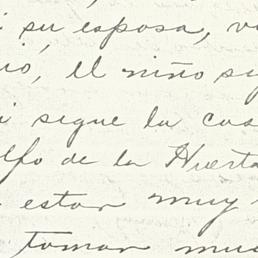 su esposa,
el niño
sigue la
de la Huerta
estar muy
tomar